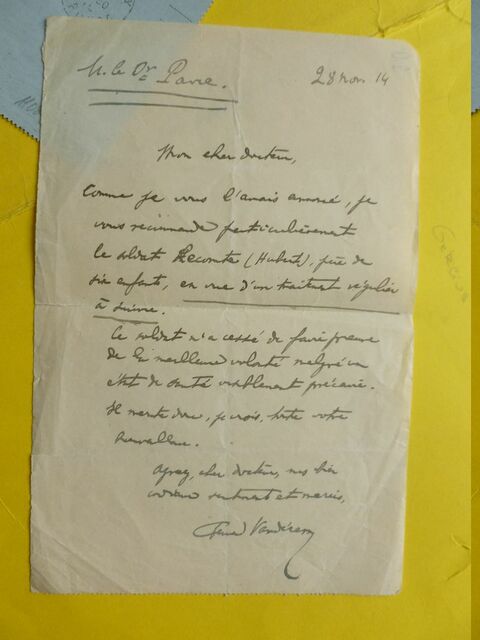 M. le Dr Pavre.
28 nov. 14
Mon cher docteur,
Comme je vous l'avais annoncé, je
vous recommande particulièrement
le soldat Lecomte (Hubert), père de
six enfants, en vue d'un traitement régulier
à suivre.
Ce soldat n'a cessé de faire preuve
de la meilleure volonté malgré un
état de santé visiblement précaire.
Il mérite donc, je crois, toute votre
bienveillance.
Agréez, cher docteur, mes bien
sentiments et mercis,